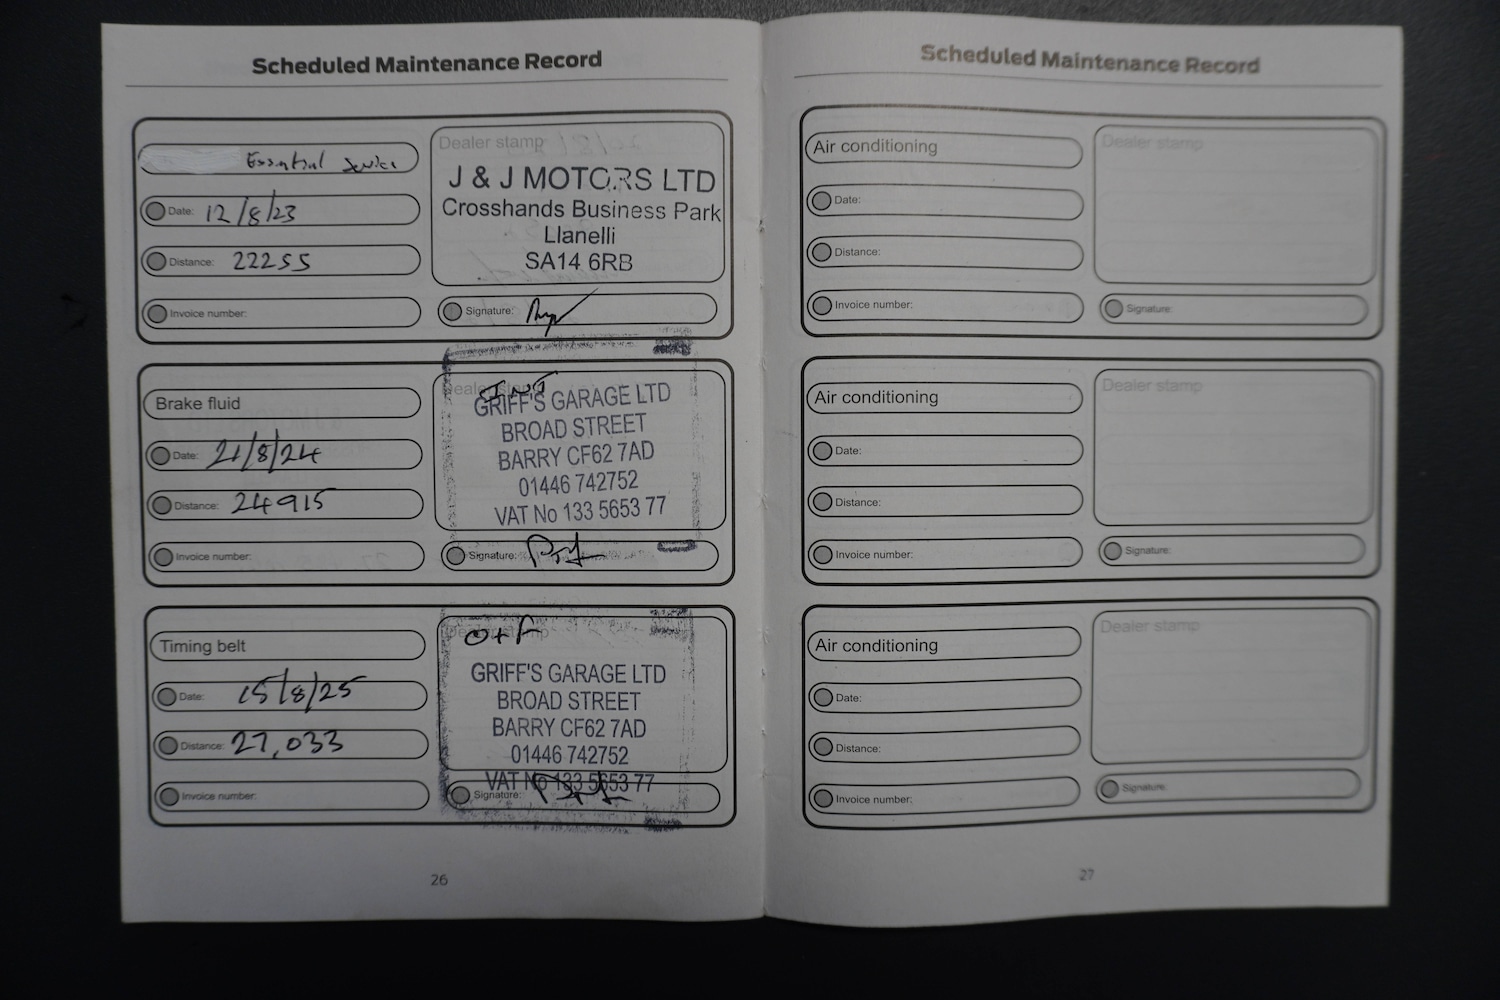 Scheduled Maintenance Record
Essential Service
Date: 12/8/23
Distance: 22255
Invoice number:
Dealer stamp
J & J MOTORS LTD
Crosshands Business Park
Llanelli
SA14 6RB
Signature:
Brake fluid
Date: 21/8/24
Distance: 24915
Invoice number:
Dealer stamp
INT
GRIFF'S GARAGE LTD
BROAD STREET
BARRY CF62 7AD
01446 742752
VAT No 133 5653 77
Signature:
Timing belt
Date: 15/8/25
Distance: 27,033
Invoice number:
Dealer stamp
O+F
GRIFF'S GARAGE LTD
BROAD STREET
BARRY CF62 7AD
01446 742752
VAT No 133 5653 77
Signature:
26
Scheduled Maintenance Record
Air conditioning
Date:
Distance:
Invoice number:
Dealer stamp
Signature:
Air conditioning
Date:
Distance:
Invoice number:
Dealer stamp
Signature:
Air conditioning
Date:
Distance:
Invoice number:
Dealer stamp
Signature:
27